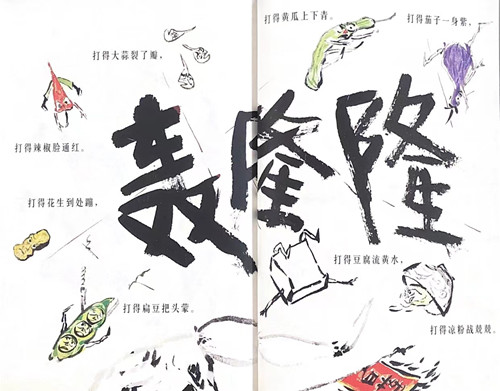 打得大蒜裂了瓣，
打得黄瓜上下青。
打得茄子一身紫，
打得辣椒脸通红。
轰隆隆
打得花生到处蹦，
打得豆腐流黄水，
打得扁豆把头蒙。
打得凉粉战兢兢。